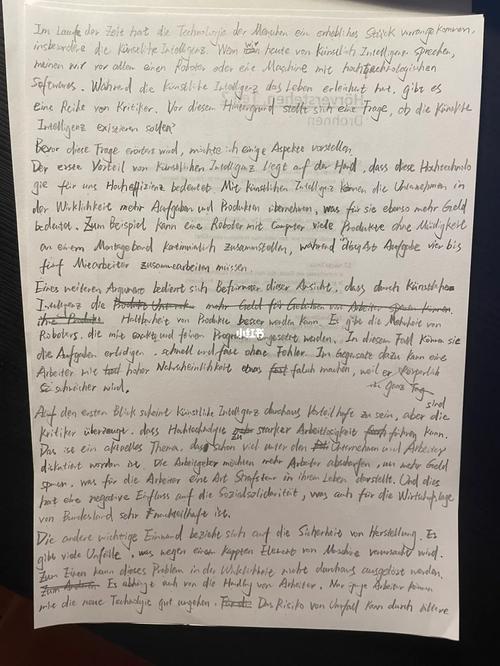 Im Laufe der Zeit hat die Technologie der Menschen ein erhebliches Stück vorangekommen,
insbesondere die Künstliche Intelligenz. Wenn wir heute von Künstlich Intelligenz sprechen,
meinen wir vor allen einen Roboter oder eine Machine mit hochtechnologischen
Softwares. Während die Künstliche Intelligenz das Leben erleichtert hat, gibt es
eine Reihe von Kritiker. Vor diesem Hintergrund stellt sich eine Frage, ob die Künstliche
Intelligenz existieren sollen?
Bevor diese Frage erörtert wird, möchte ich einige Aspekte vorstellen.
Der erste Vorteil von Künstlichen Intelligenz liegt auf der Hand, dass diese Hochtechnolo
gie für uns Hocheffizienz bedeutet. Mit Künstlichen Intelligenz können die Unternehmen in
der Wirklichkeit mehr Aufgaben und Produkten übernehmen, was für sie ebenso mehr Geld
bedeutet. Zum Beispiel kann eine Roboter mit Computer viele Produkte ohne Müdigkeit
an einem Montageband zusammenstellen, während Aufgabe vier bis
fünf Mitarbeiter zusammenarbeiten müssen.
Eines weiteren Argument bedient sich Befürworter dieser Ansicht, dass durch Künstlichen
Intelligenz die mehr Geld für von Arbeiter sparen können.
ihre Produkte Haltbarkeit von Produkte besser werden kann. Es gibt die Mehrheit von
Robotern, die mit exakt und feinen gesetzt werden. In diesem Fall können sie
die Aufgaben erledigen, schnell und fast ohne Fehler. Im Gegensatz dazu kann eine
Arbeiter mit fast hoher Wahrscheinlichkeit etwas fast falsch machen, weil er körperlich
schwächer wird.
Ganz Tag
sind
Auf den ersten Blick scheint Künstliche Intelligenz durchaus Vorteilhafte zu sein, aber die
Kritiker überzeugt, dass Hochtechnologie zu starker Arbeitlosigkeit führen kann.
Das ist ein aktuelles Thema, das schon viel unter den Unternehmen und Arbeiter
diskutiert worden ist. Die Arbeitgeber möchten mehr Arbeiter, um mehr Geld
sparen, was für die Arbeiter eine Art Strafsteuer in ihrem Leben darstellt. Und dies
hat eine negative Einfluss auf die Sozialsolidarität, was auch für die Wirtschaftslage
von Bundesland sehr nachteilhafte ist.
Die andere wichtige Einwand bezieht sich auf die Sicherheit von Herstellung. Es
gibt viele Unfälle, was wegen einem kaputten Element von Maschine verursacht wird.
Zum Einen kann dieses Problem in der Wirklichkeit nicht durchaus ausgelöst werden.
Es abhängt auch von die Handlung von Arbeiter. Nur junge Arbeiter können
mit die neue Technologie gut umgehen. Das Risiko von Umfall kann durch ältere
Hörverstehen
Drohnen
小红书